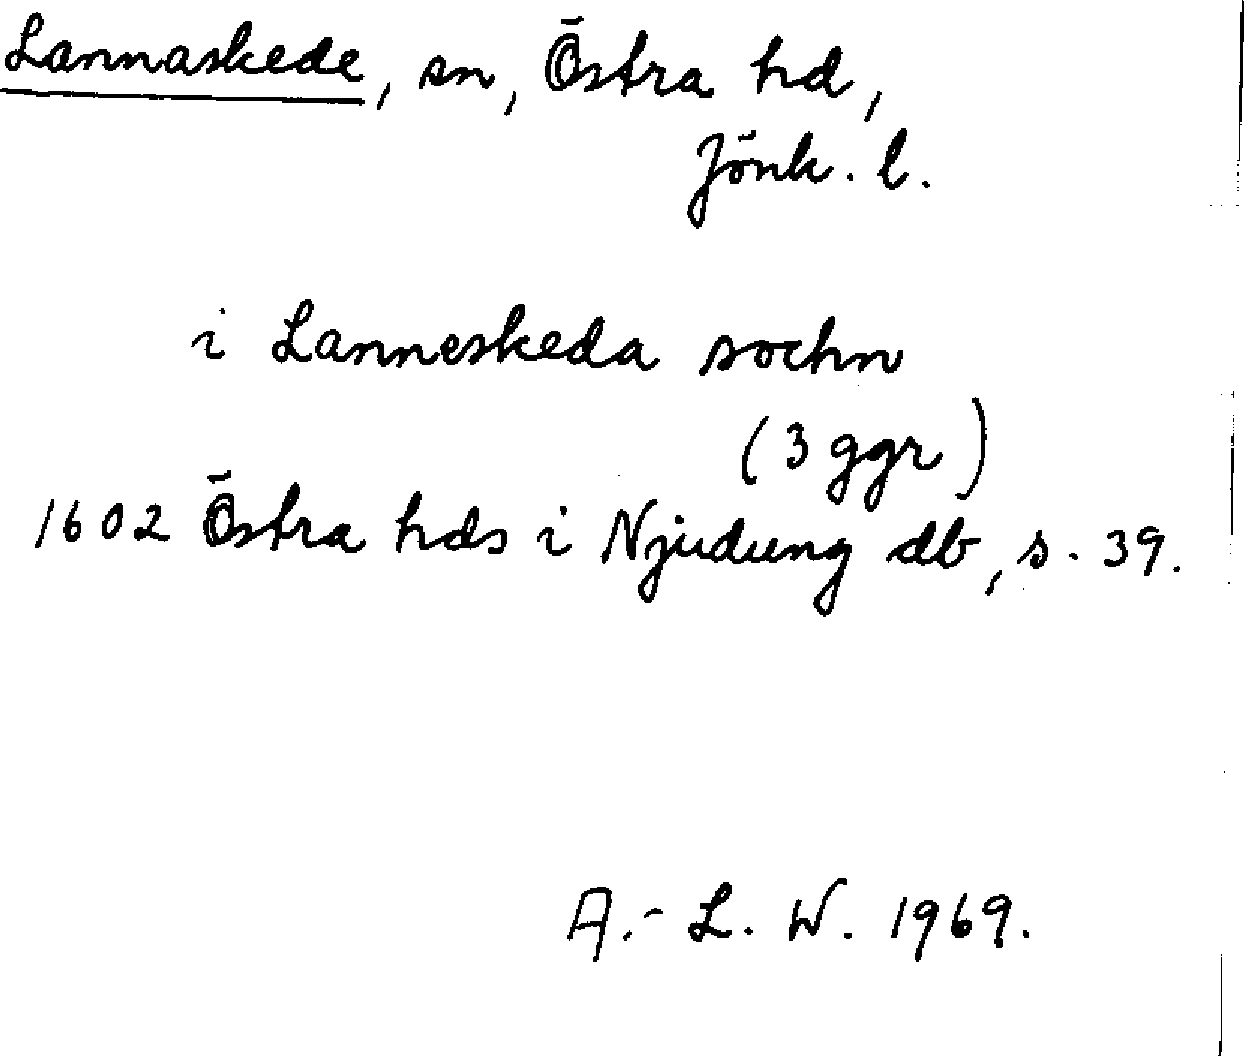 Lannaskede, sn, Östra hd,
Jönk. l.
i Lanneskeda sochn
(3 ggr)
1602 Östra hds i Njudung db, s. 39.
A.-L. W. 1969.